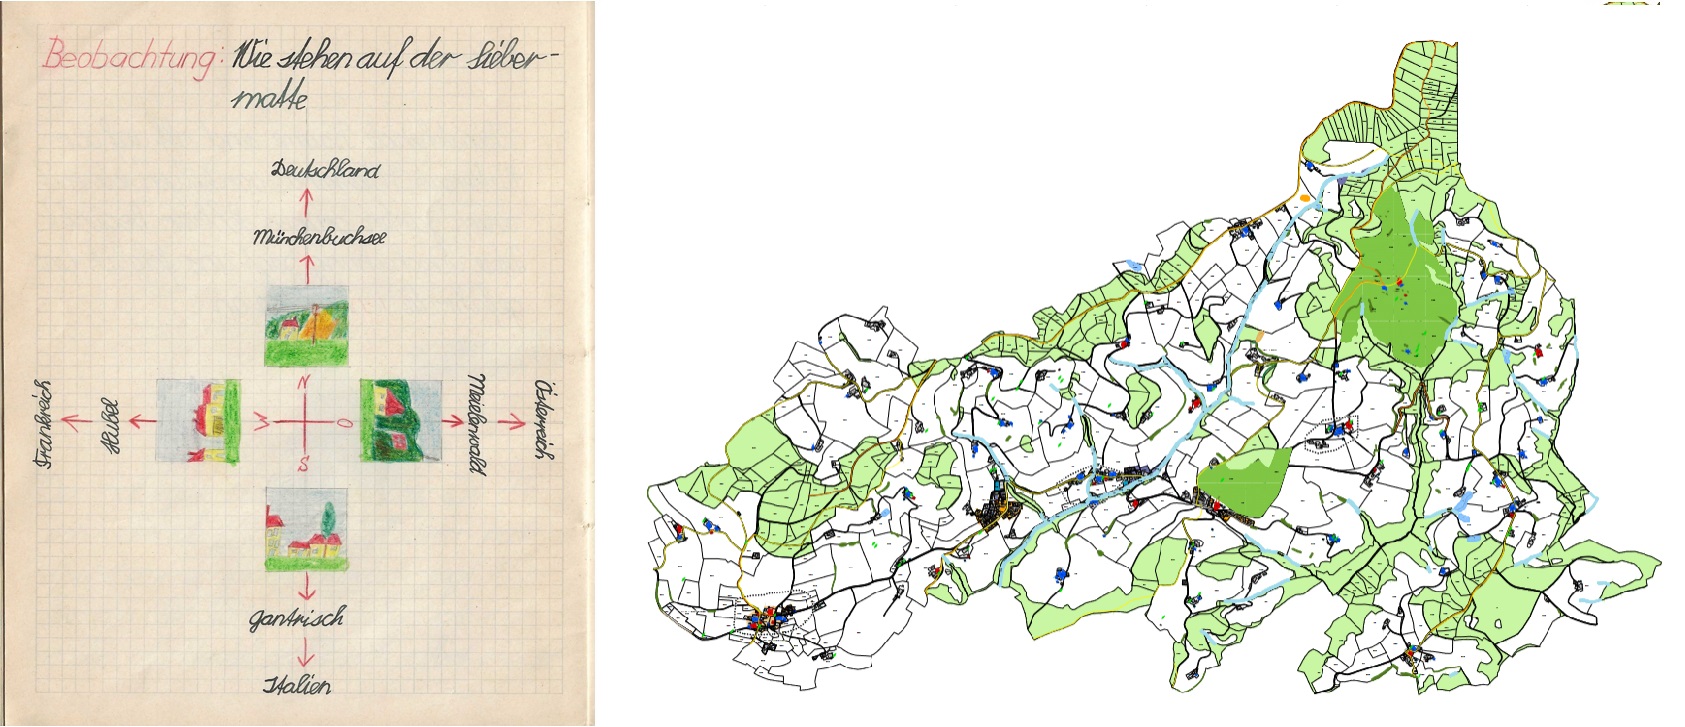 Beobachtung: Wir stehen auf der Lieber-
matte
Deutschland
Münchenbuchsee
N
Frankreich
Hubel
W
O
Meielenwald
Österreich
S
Gantrisch
Italien